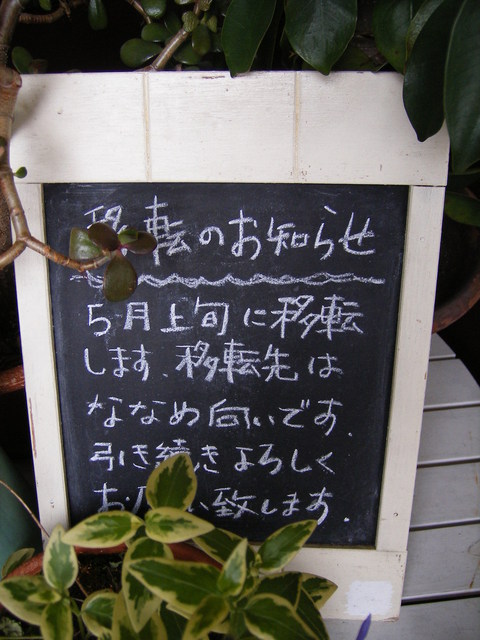 移転のお知らせ
5月上旬に移転
します.移転先は
ななめ向いです.
引き続きよろしく
お願い致します.